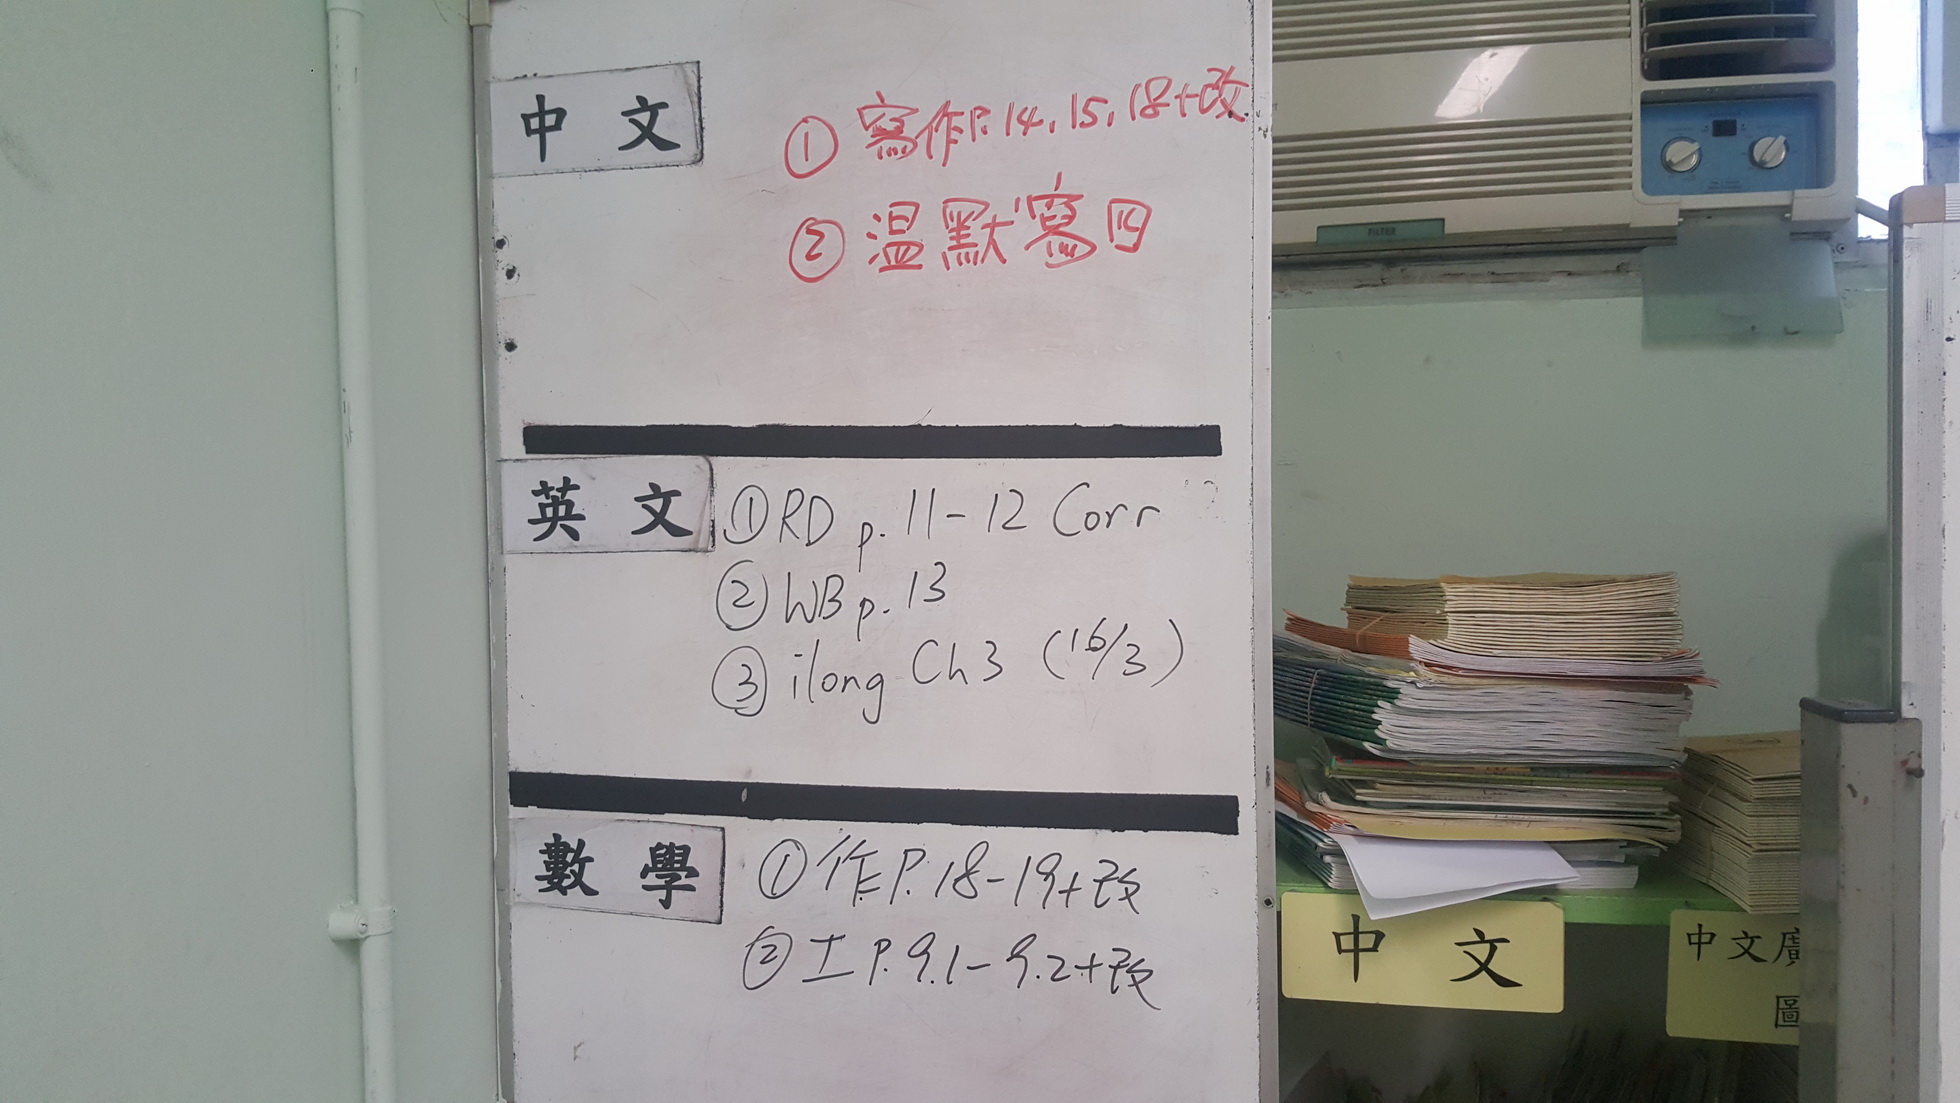 中文
① 寫作P.14,15,18+改
② 温默寫四
英文
① RD p.11-12 Corr
② WB p.13
③ ilong Ch3 (16/3)
數學
① 作P.18-19+改
② 工P.9.1-9.2+改
FILTER
中文
中文廣
圖